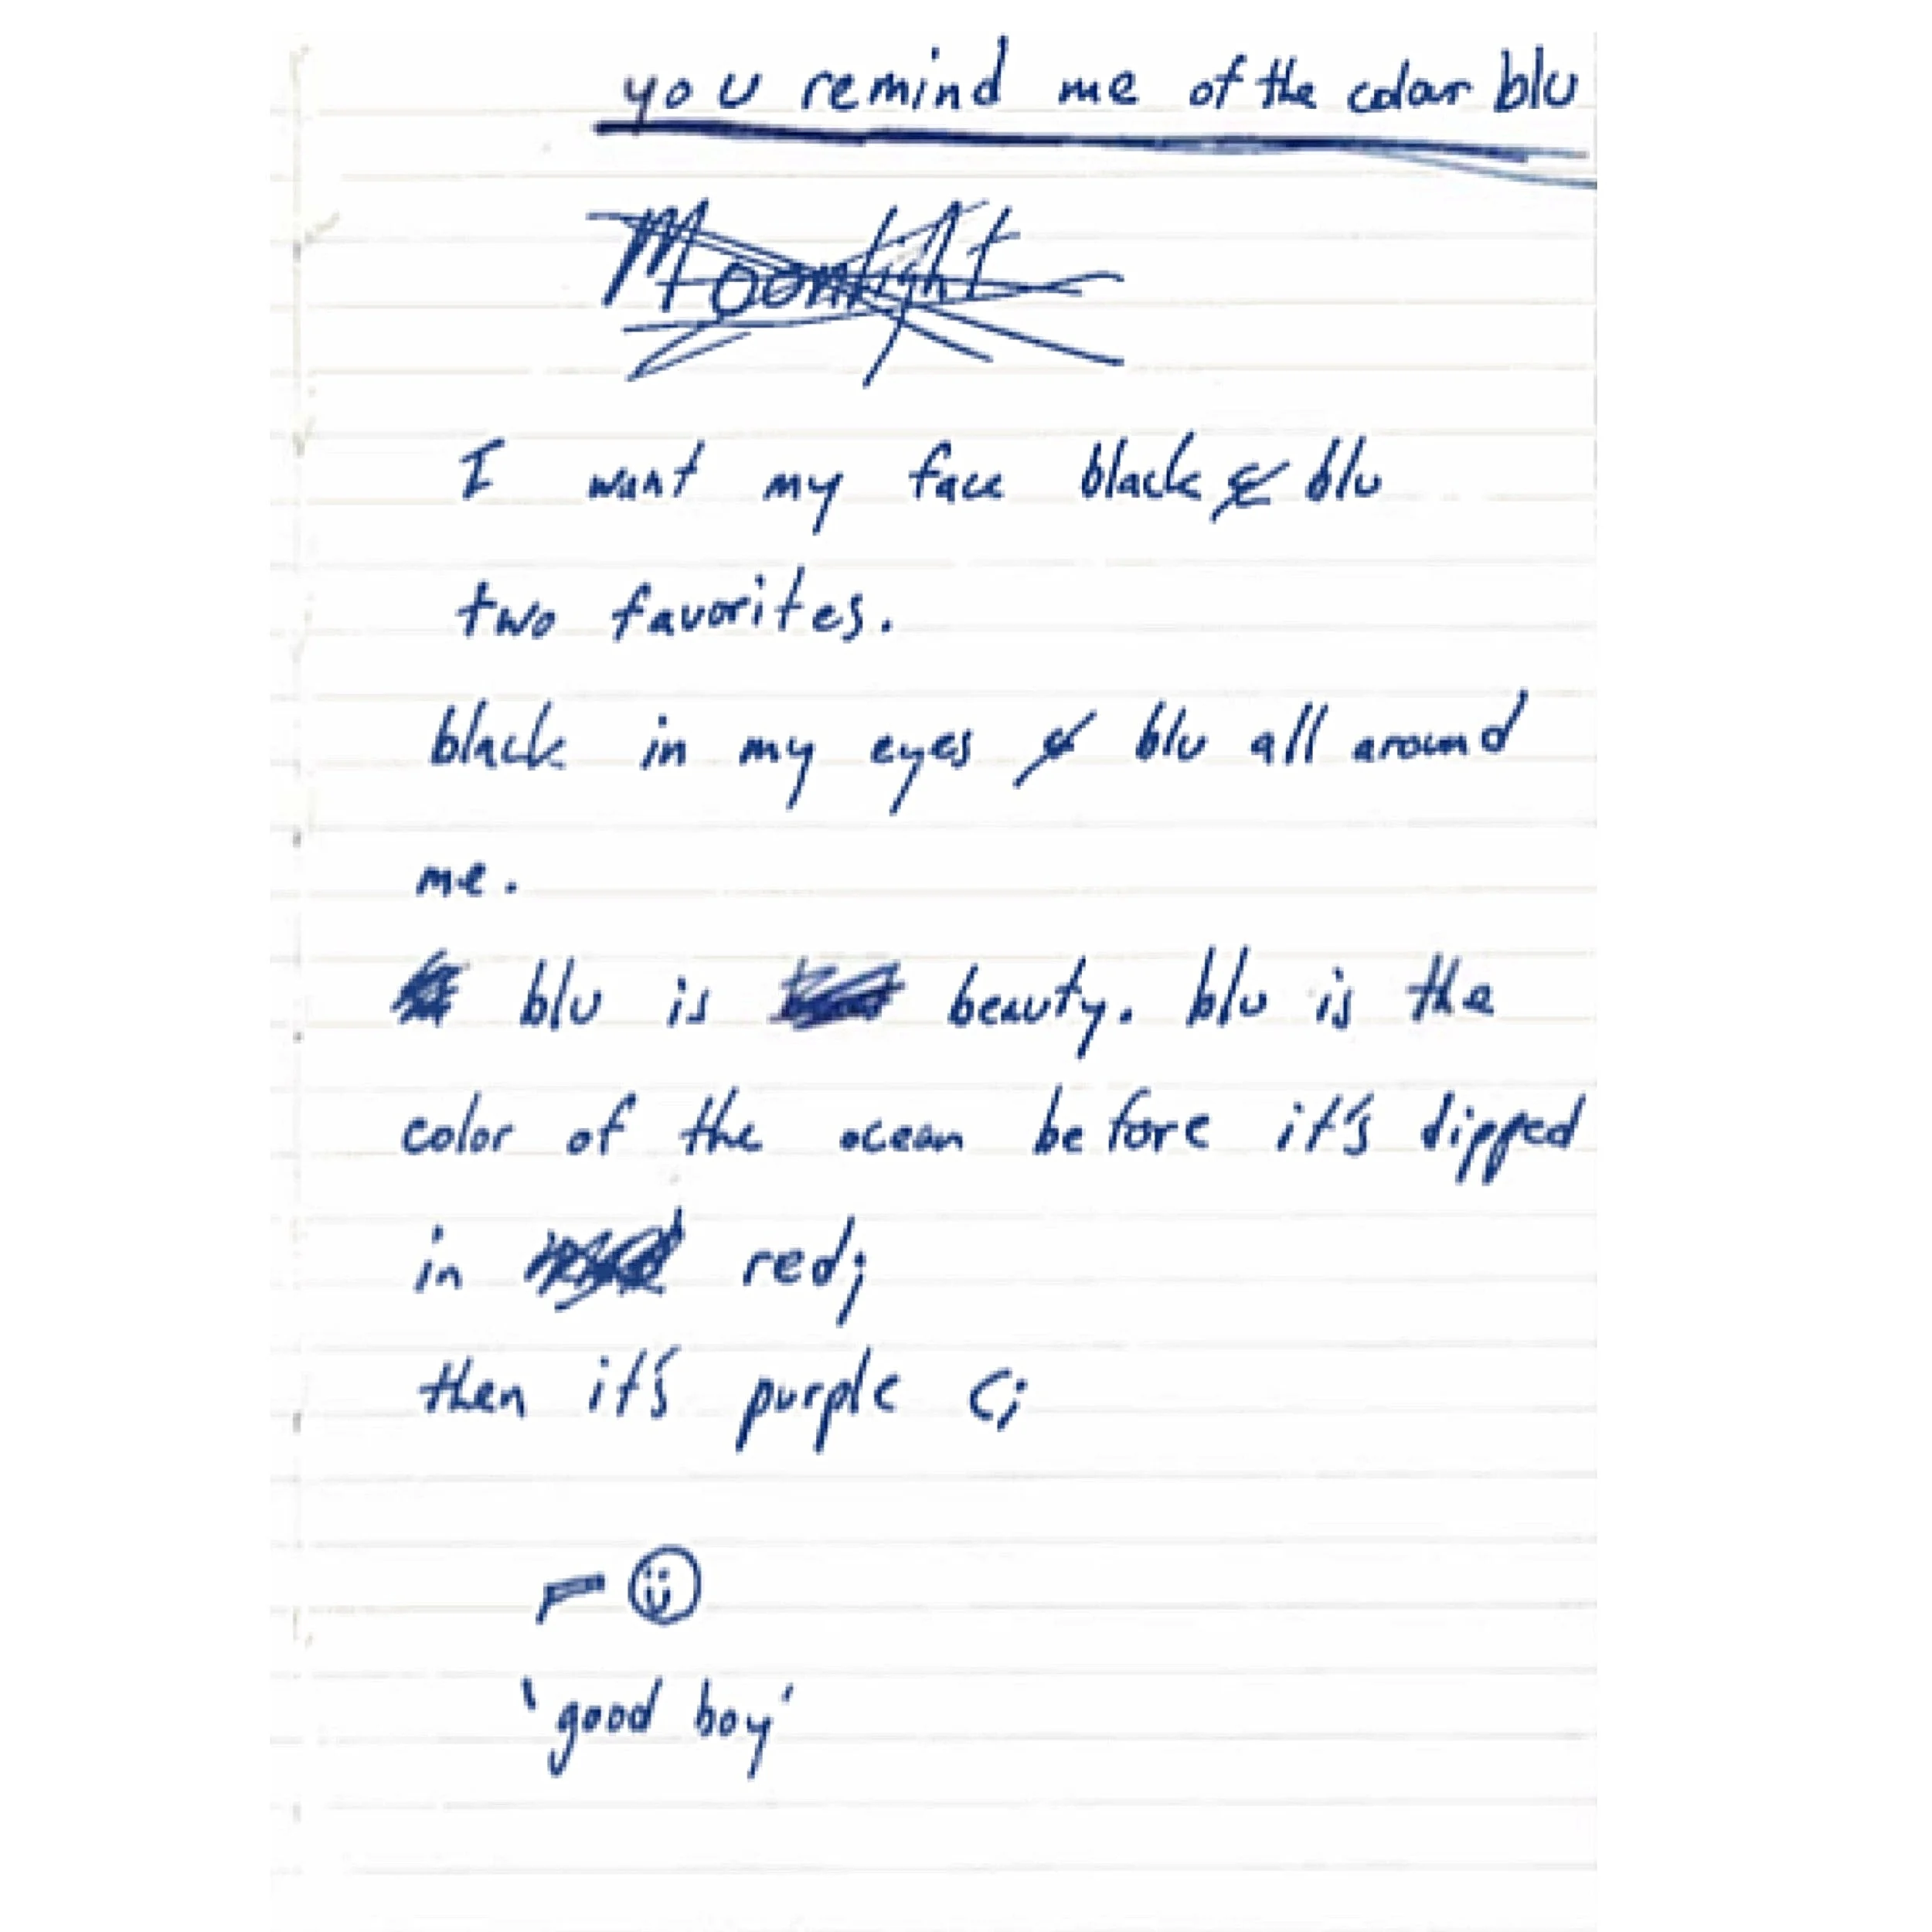 you remind me of the colour blu
Moonlight
I want my face black & blu
two favorites.
black in my eyes & blu all around
me.
blu is beauty. blu is the
color of the ocean before it's dipped
in red;
then it's purple c;
'good boy'